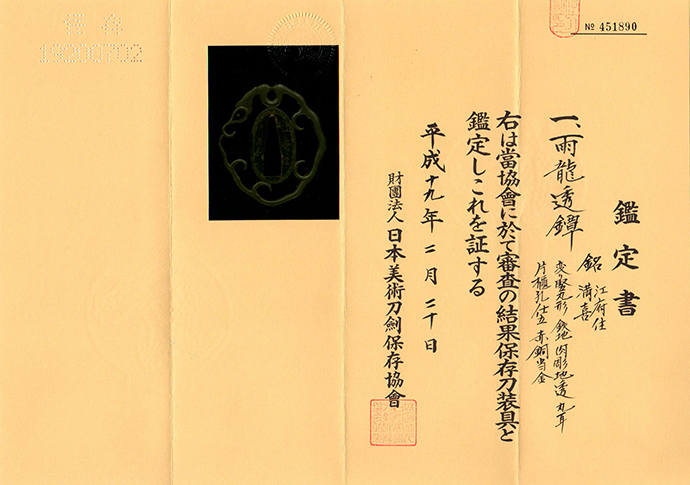 № 451890
鑑定書
一、雨龍透鐔
銘 江府住
満喜
変り竪丸形 鉄地 肉彫地透 丸耳
片櫃孔仕立 赤銅当金
右は當協會に於て審査の結果保存刀装具と
鑑定しこれを証する
平成十九年二月二十日
財團法人 日本美術刀劍保存協會
保存
19000702